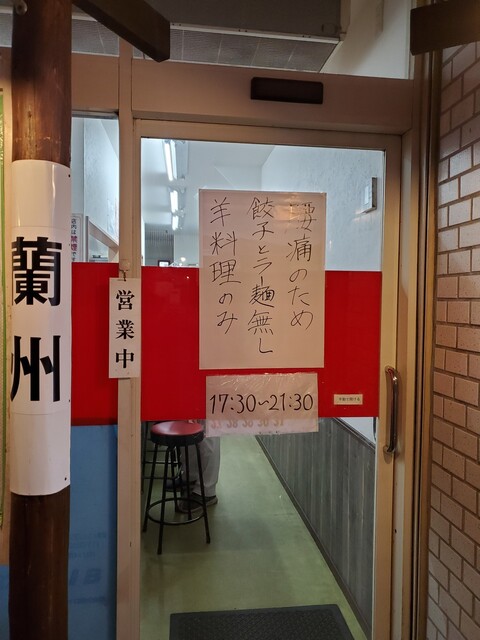 蘭州
営業中
腰痛のため
餃子とラー麺無し
羊料理のみ
17:30~21:30